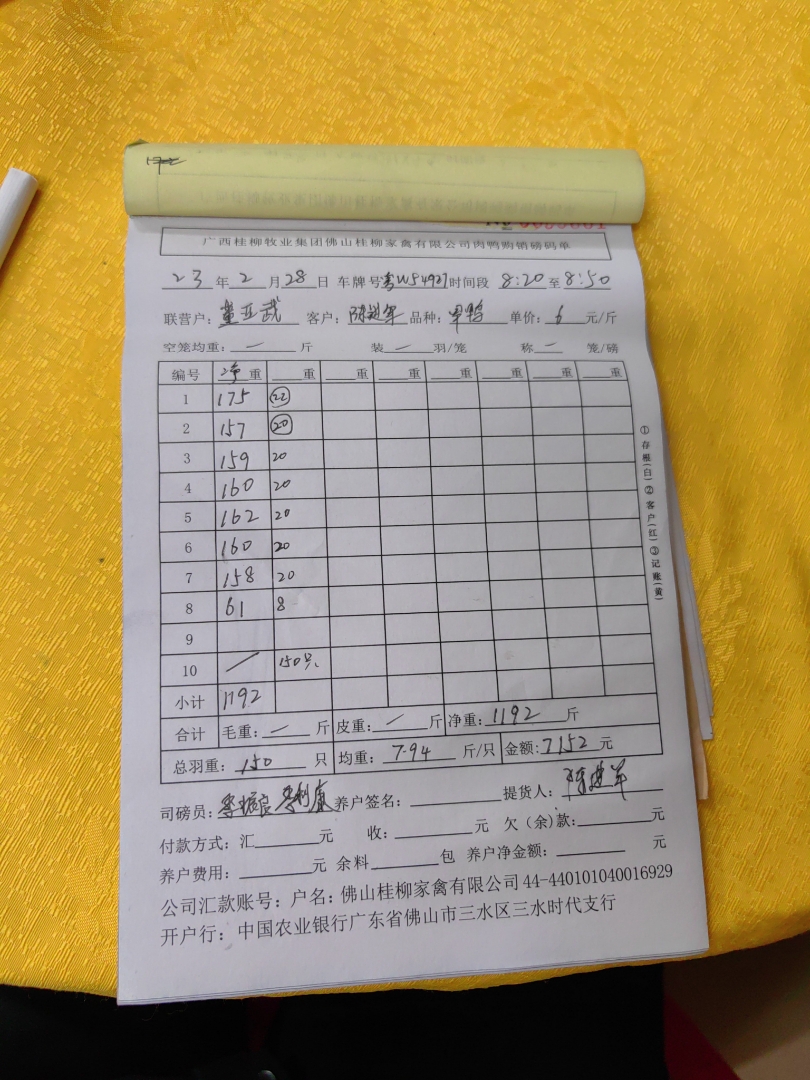 广西桂柳牧业集团佛山桂柳家禽有限公司肉鸭购销磅码单
23 年 2 月 28 日 车牌号 粤W54927 时间段 8:20 至 8:50
联营户: 董亚武 客户: 陈建军 品种: 甲鸭 单价: 6 元/斤
空笼均重: — 斤 装 — 羽/笼 称 — 笼/磅
编号 净重 重 重 重 重 重 重 重
1 175 22
2 157 20
3 159 20
4 160 20
5 162 20
6 160 20
7 158 20
8 61 8
9
10 / 150只
小计 1192
合计 毛重: — 斤 皮重: — 斤 净重: 1192 斤
总羽重: 150 只 均重: 7.94 斤/只 金额: 7152 元
司磅员: 养户签名: 提货人: 陈建军
付款方式: 汇 元 收: 元 欠(余)款: 元
养户费用: 元 余料 包 养户净金额: 元
公司汇款账号: 户名: 佛山桂柳家禽有限公司 44-440101040016929
开户行: 中国农业银行广东省佛山市三水区三水时代支行
①存根(白)②客户(红)③记账(黄)